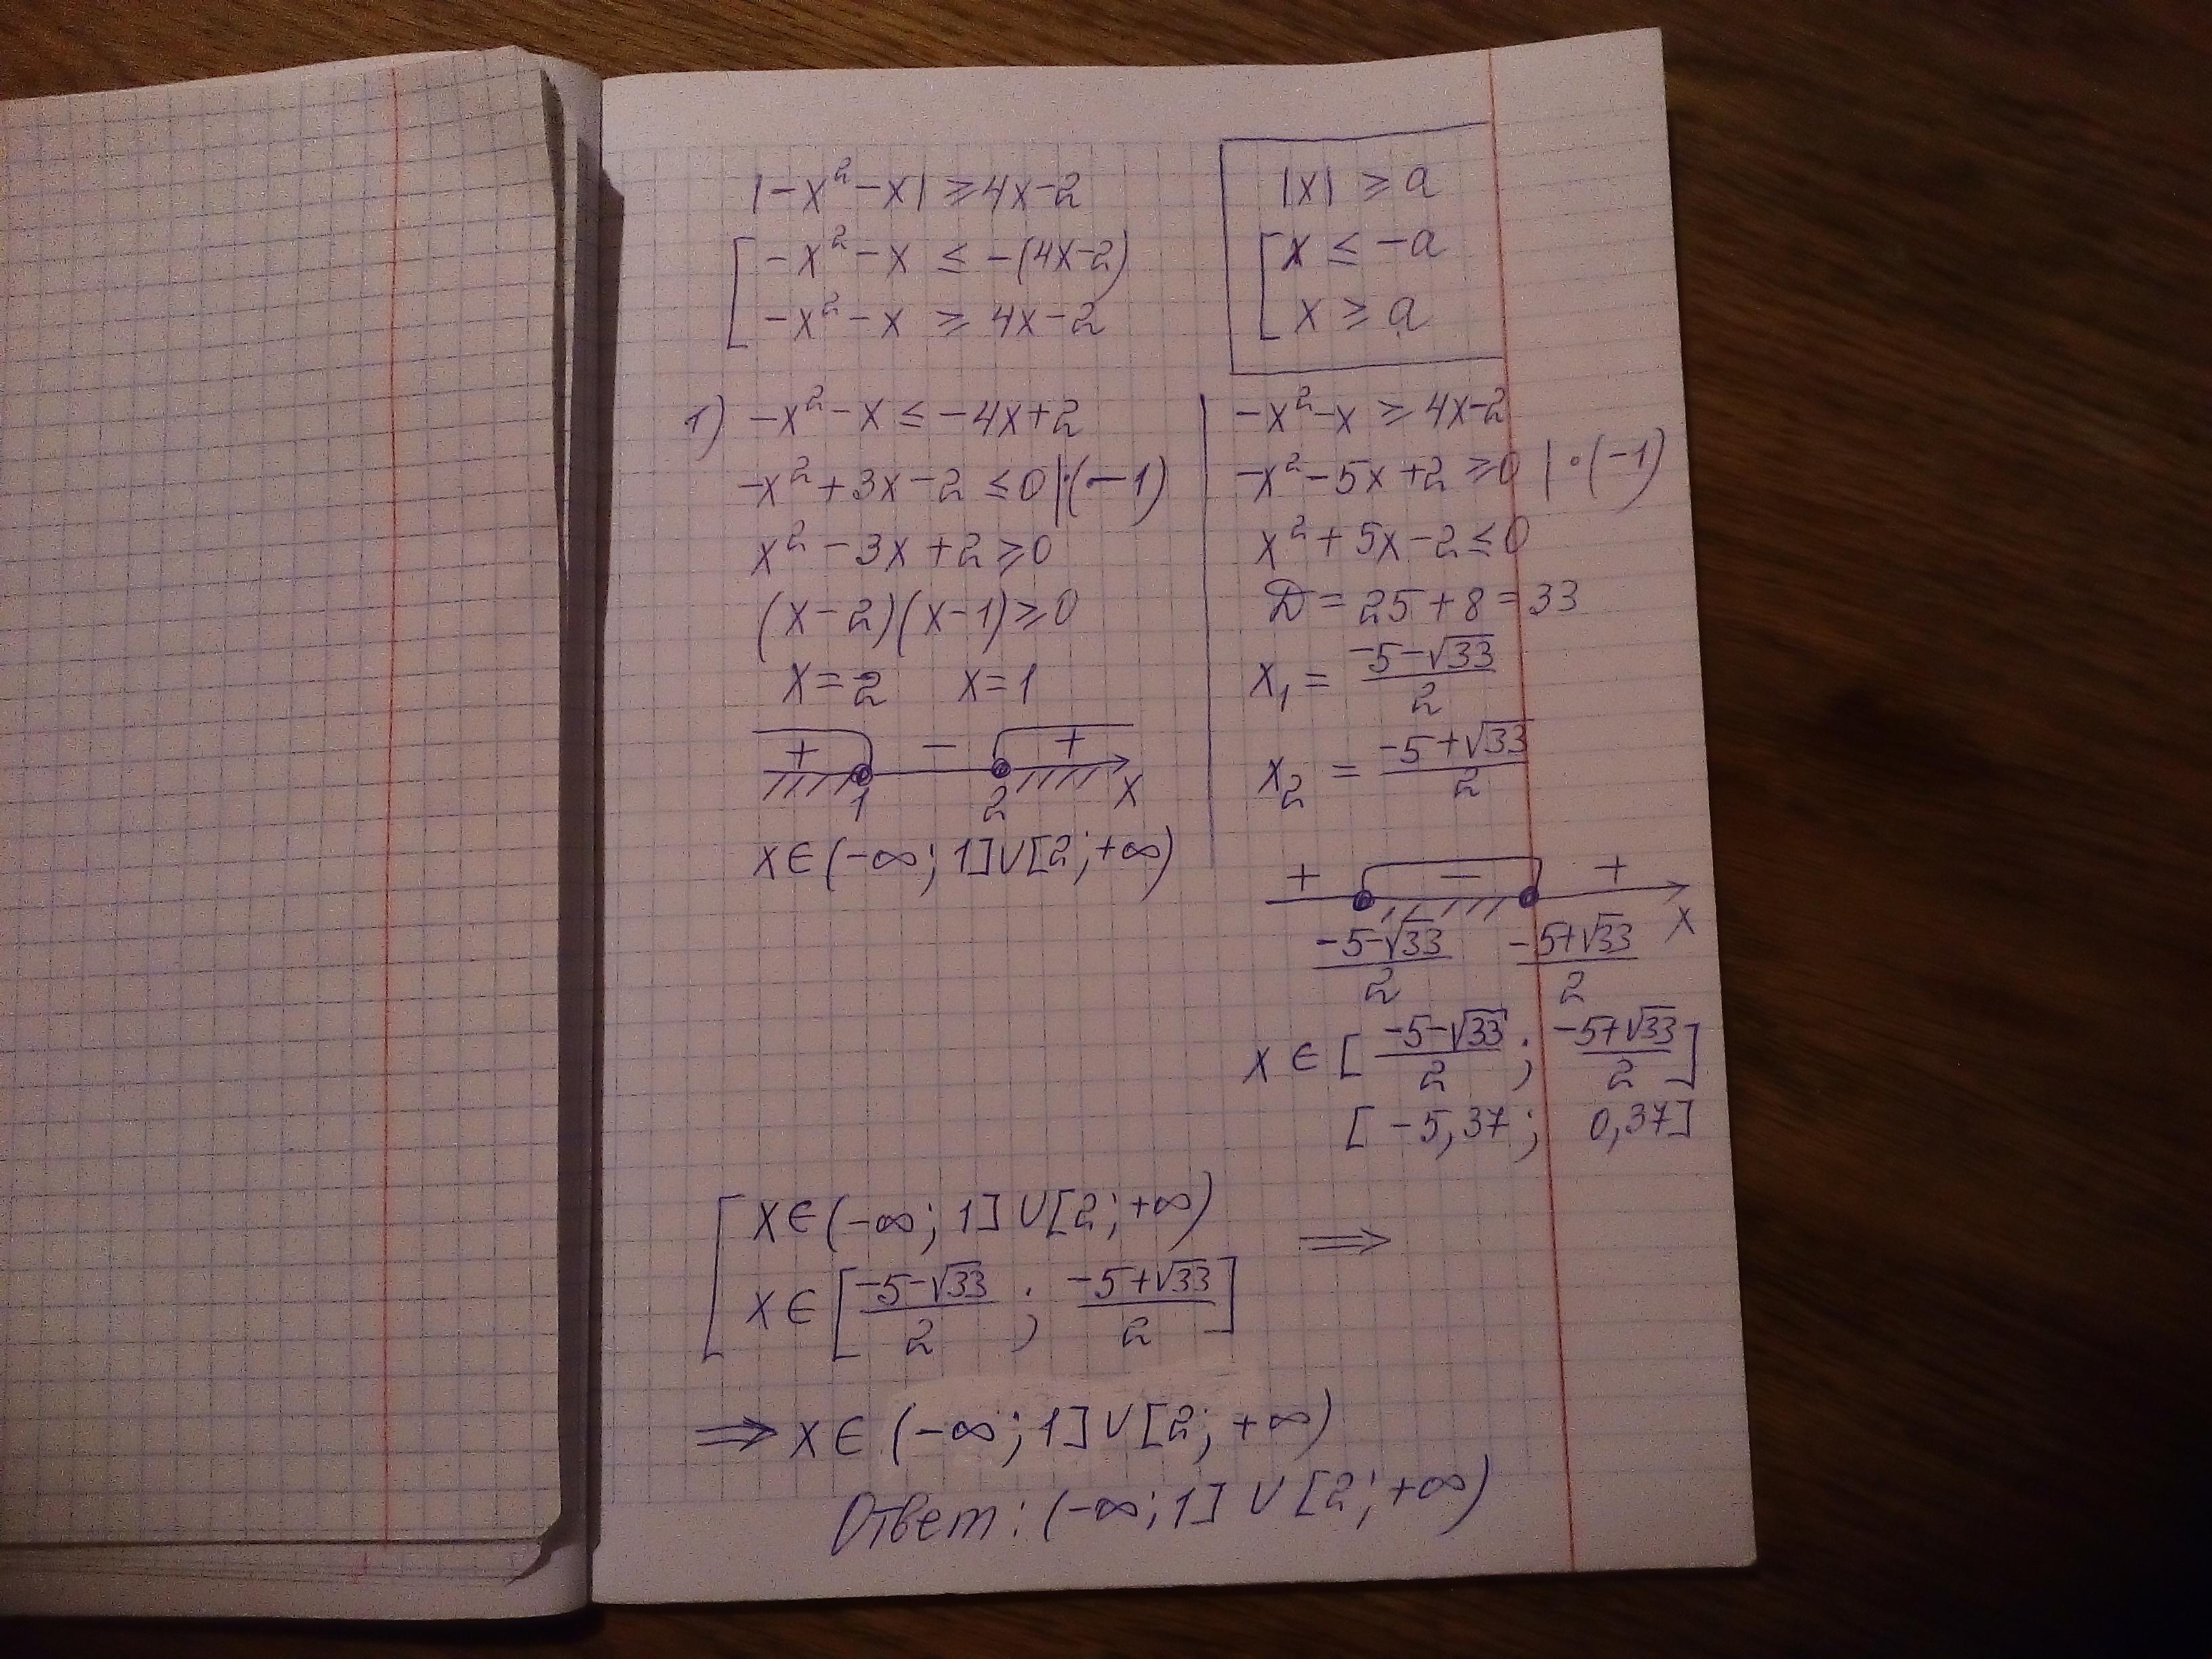 |-x²-x| ≥ 4x-2
[ -x²-x ≤ -(4x-2)
-x²-x ≥ 4x-2
|x| ≥ a
[ x ≤ -a
x ≥ a
1) -x²-x ≤ -4x+2
-x²+3x-2 ≤ 0 |·(-1)
x²-3x+2 ≥ 0
(x-2)(x-1) ≥ 0
x=2 x=1
+ - +
1 2 x
x∈(-∞; 1]∪[2; +∞)
-x²-x ≥ 4x-2
-x²-5x+2 ≥ 0 | ·(-1)
x²+5x-2 ≤ 0
D = 25+8 = 33
x₁ = (-5-√33)/2
x₂ = (-5+√33)/2
+ - +
(-5-√33)/2 (-5+√33)/2 x
x ∈ [(-5-√33)/2 ; (-5+√33)/2]
[-5,37; 0,37]
[ x∈(-∞; 1]∪[2; +∞)
x∈[(-5-√33)/2 ; (-5+√33)/2] ⟹
⟹ x∈(-∞; 1]∪[2; +∞)
Ответ: (-∞; 1]∪[2; +∞)